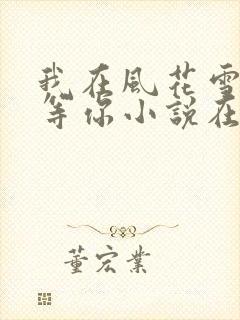 我在風花雪
等你小說在
董宏業